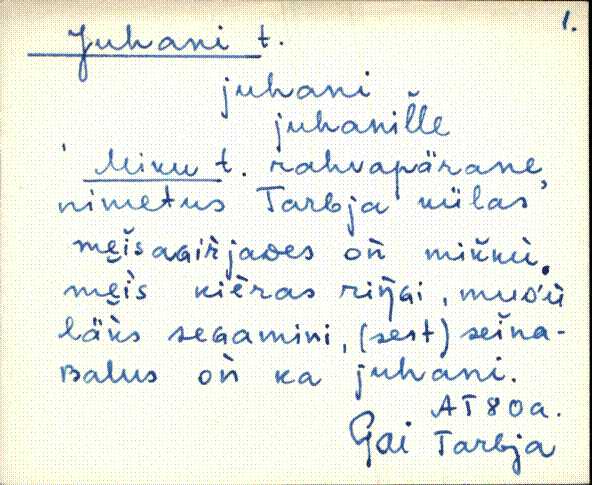 1.
Juhani t.
juhani
juhanil̆le
Miku t. rahvapärane
nimetus Tarbja külas
mẹi̮sagir̀jaᴅes on̆ mik̆kù.
mẹi̮s kièras rin̆gi, muᴅ'ù
läk̆s segamini, (sest) sei̮na-
ʙalus on̆ ka juhani.
AT 80a.
Gai Tarbja